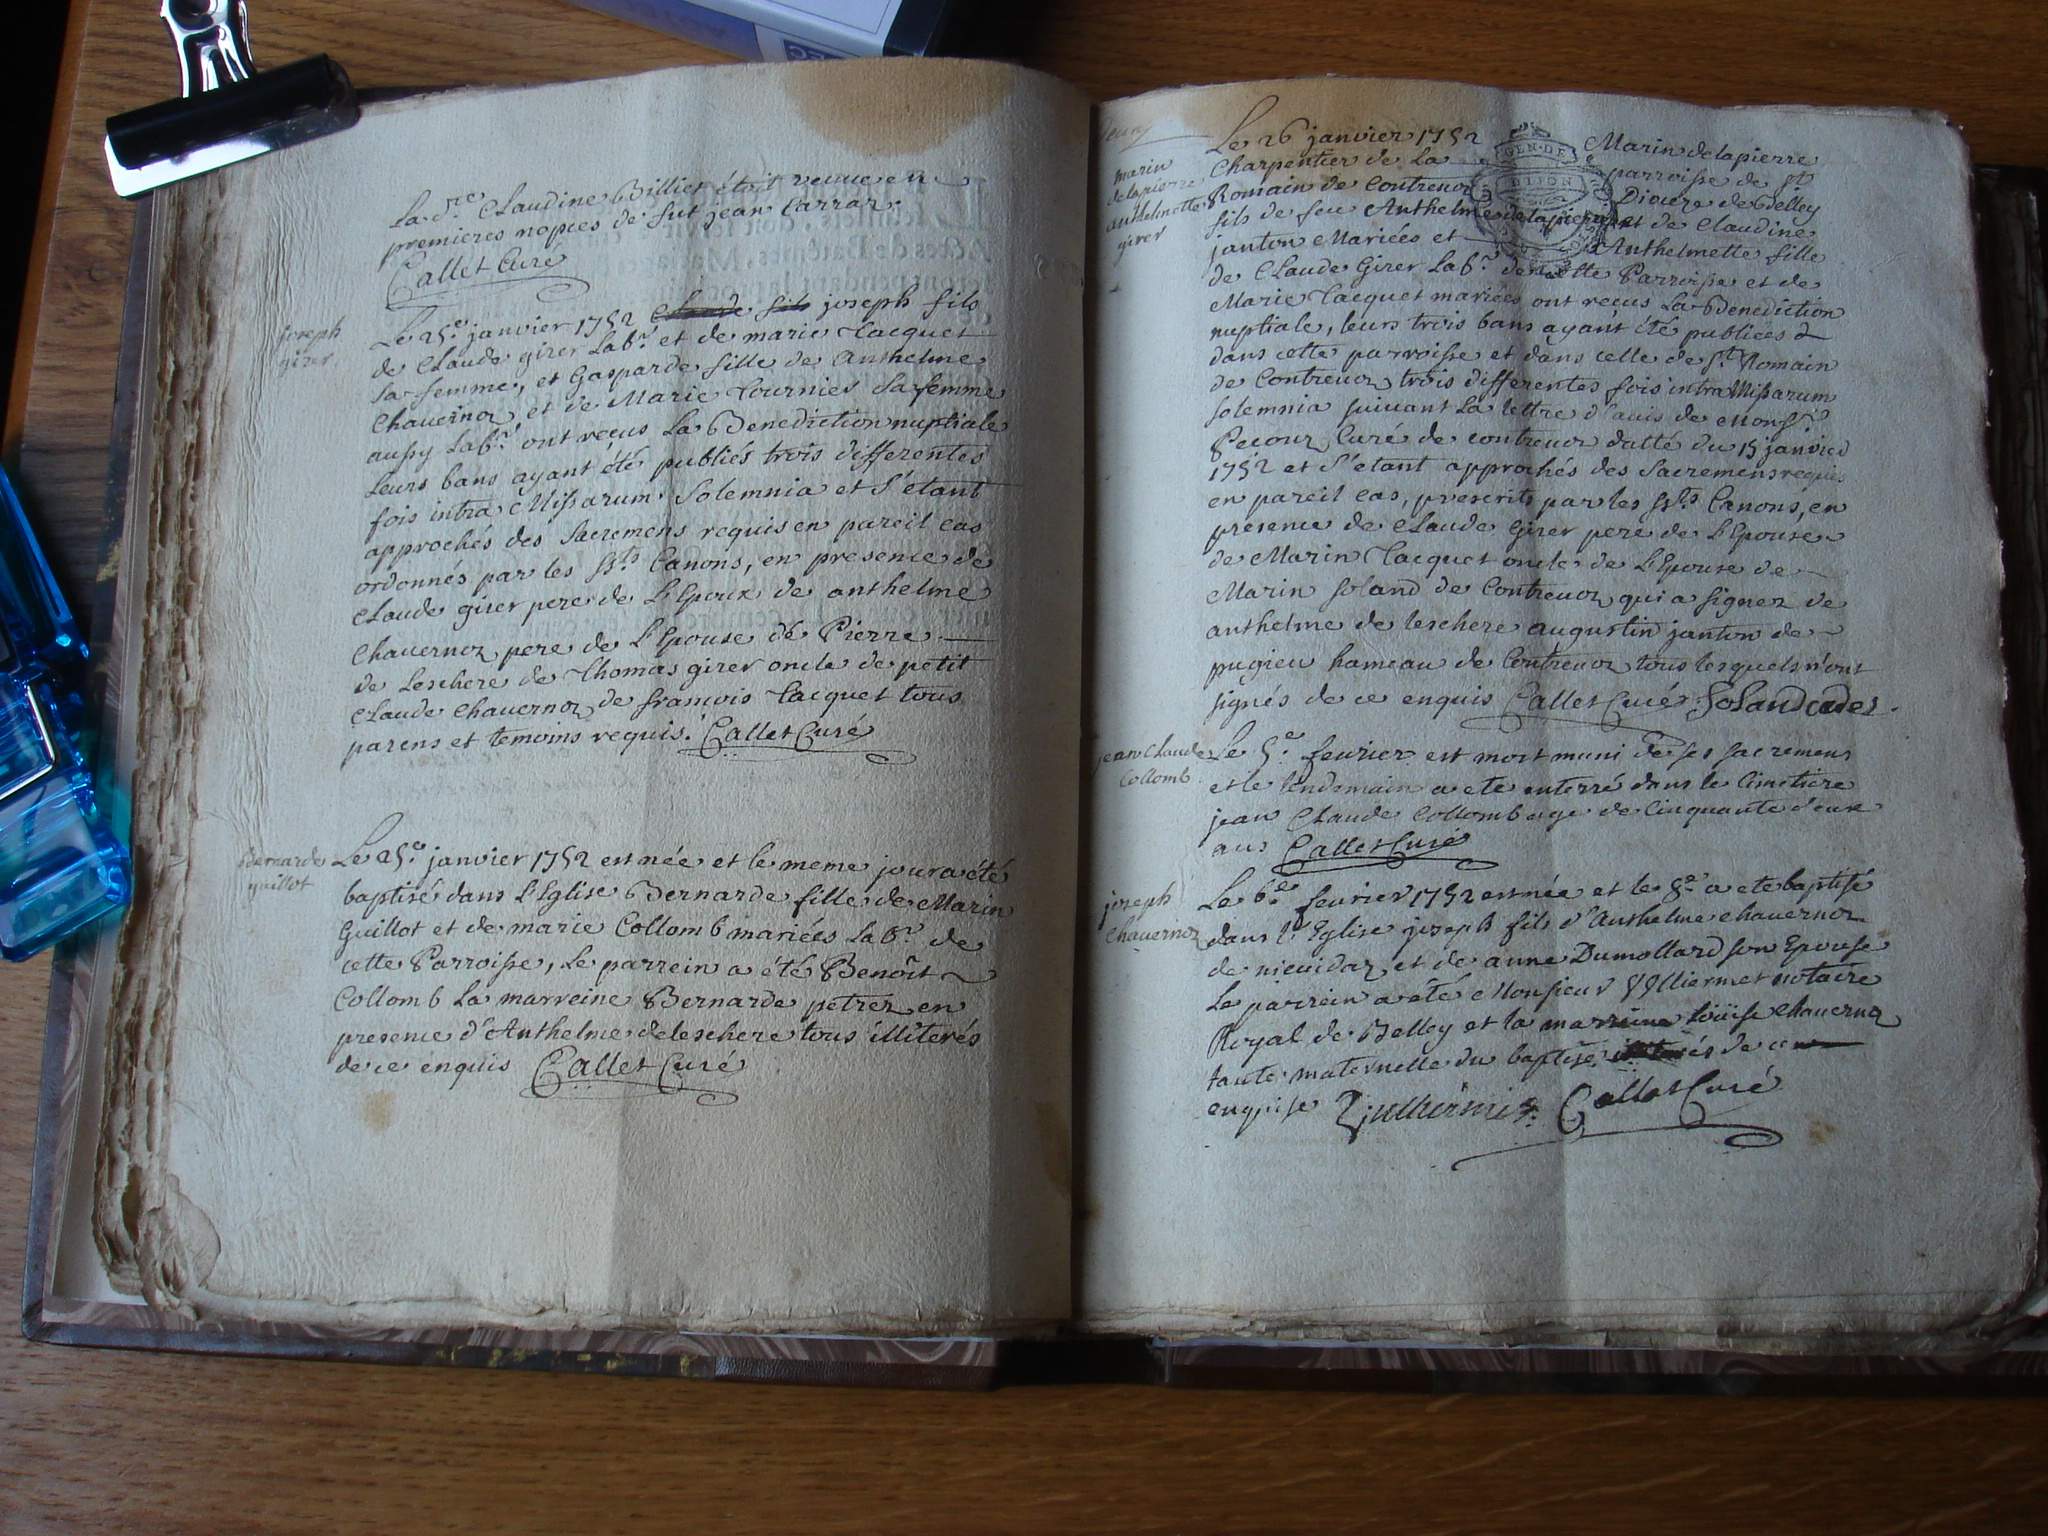 La d.te Claudine Billiet étoit veuve en
premieres nopces de fut jean Carraz.
Callet Curé
joseph
girer
Le 25.e janvier 1752 Claude fils joseph fils
de Claude girer Lab.r et de marie Jacquet
sa femme, et Gasparde fille de Anthelme
Chavernoz et de Marie Tournier sa femme
aussy Lab.r ont reçus La Benediction nuptiale
Leurs bans ayant été publiés trois differentes
fois intra Missarum Solemnia et s'etant
approchés des Sacremens requis en pareil cas
ordonnés par les Sts. Canons, en presence de
Claude girer pere de L'Epoux de anthelme
Chavernoz pere de l'Epouse de Pierre
de Leschere de Thomas girer oncle de petit
Claude Chavernoz de françois Jacquet tous
parens et temoins requis. Callet Curé
Bernarde
guillot
Le 25.e janvier 1752 est née et le meme jour a été
baptisé dans L'Eglise Bernarde fille de Marin
Guillot et de marie Collomb mariées Lab.r de
cette Parroisse, Le parrein a été Benoît
Collomb La marreine Bernarde petrez en
presence d'Anthelme deleschere tous illiterés
de ce enquis Callet Curé
marin
delapierre
anthelmette
girer
Le 26 janvier 1752 Marin delapierre
Charpentier de La parroisse de St
Romain de Contrevoz Dioceze de Belley
fils de feu Anthelme delapierre et de Claudine
janton Mariées et Anthelmette fille
de Claude Girer Lab.r de cette Parroisse et de
Marie Jacquet mariées ont reçus La Benediction
nuptiale, leurs trois bans ayant été publiées
dans cette parroisse et dans celle de St Romain
de Contrevoz trois differentes fois intra Missarum
solemnia suivant La lettre d'avis de Mons.r
Pecour Curé de contrevoz datté du 15 janvier
1752 et s'etant approchés des Sacremens requis
en pareil cas, prescrits par les Sts. Canons, en
presence de Claude Girer pere de L'Epouse
de Marin Jacquet oncle de L'Epouse de
Marin Soland de Contrevoz qui a signez de
anthelme de leschere augustin janton de
pugieu hameau de Contrevoz tous lesquels n'ont
signés de ce enquis Callet Curé. Soland
jean Claude
Collomb
Le 5.e fevrier est mort muni de ses sacremens
et le lendemain a ete enterré dans le Cimetiere
jean Claude Collomb age de Cinquante d'eux
ans Callet Curé
joseph
Chavernoz
Le 6.e fevrier 1752 est née et le 8.e a ete baptisé
dans l'Eglise joseph fils d'Anthelme chavernoz
de et de anne Dumollard son Epouse
Le parrein a été Monsieur notaire
Royal de Belley et la marreine Loüise chavernoz
tante maternelle du baptisé de ce
enquise Callet Curé
GEN. DE
DIJON